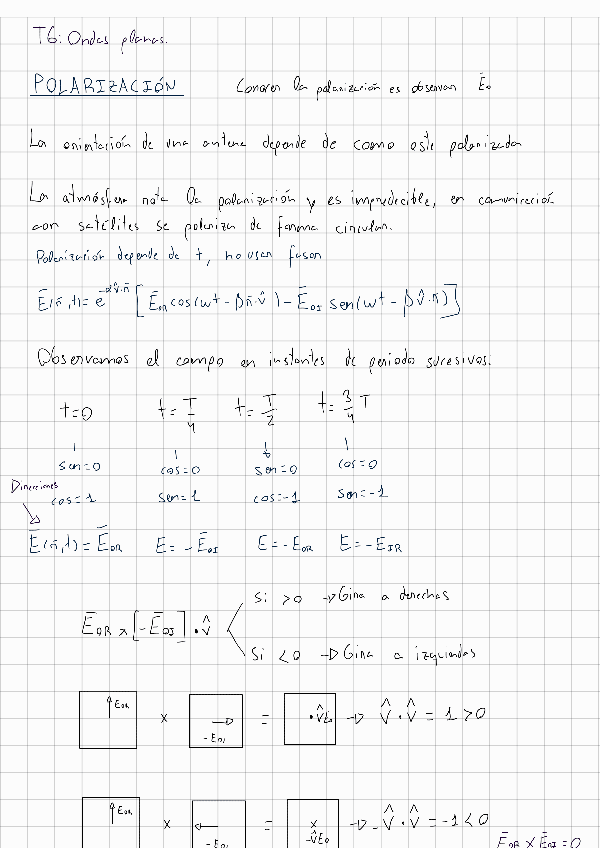 T6: Ondas planas.
POLARIZACIÓN
Conocer la polarización es observar E̅₀
La orientación de una antena depende de como este polarizada
La atmósfera rota la polarización y es impredecible, en comunicación
con satélites se polariza de forma circular.
Polarización depende de t, no usar fasor
E̅(r̅,t)= e^-αv̂·r̅ [E̅OR cos(ωt - βr̅·v̂) - E̅OI sen(ωt - βv̂·r̅)]
Observamos el campo en instantes de periodos sucesivos:
t=0 t=T/4 t=T/2 t=3/4 T
sen=0 cos=0 sen=0 cos=0
Direcciones
cos=1 sen=1 cos=-1 sen=-1
E̅(r̅,t)=E̅OR E=-E̅OI E=-EOR E=-EIR
Si >0 → Gira a derechas
E̅OR x [-E̅OI] · v̂
Si <0 → Gira a izquierdas
↑EOR x → -EOI = ·v̂E₀ → v̂·v̂ = 1 >0
↑EOR x ← -EOI = x -v̂E₀ → -v̂·v̂ = -1 <0
E̅OR x E̅OI = 0